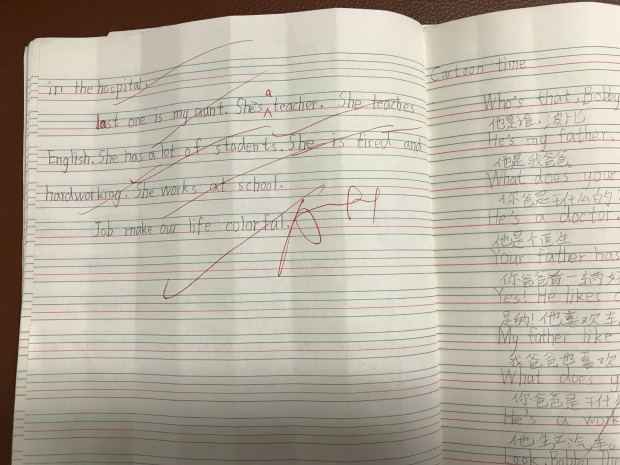 in the hospital.
last one is my aunt. She's a teacher. She teaches
English. She has a lot of students. She is tired and
hardworking. She works at school.
Job make our life colorful.
Cartoon time
Who's that, Bobby
他是谁,波比
He's my father.
他是我爸爸
What does your
你爸是干什么的
He's a doctor.
他是个医生
Your father has
你爸爸有一车两好
Yes! He likes
是的!他喜欢车
My father like
我爸爸也喜欢
What does y
你爸爸是干什
He's a work
他生产汽车
Look, Bobby The